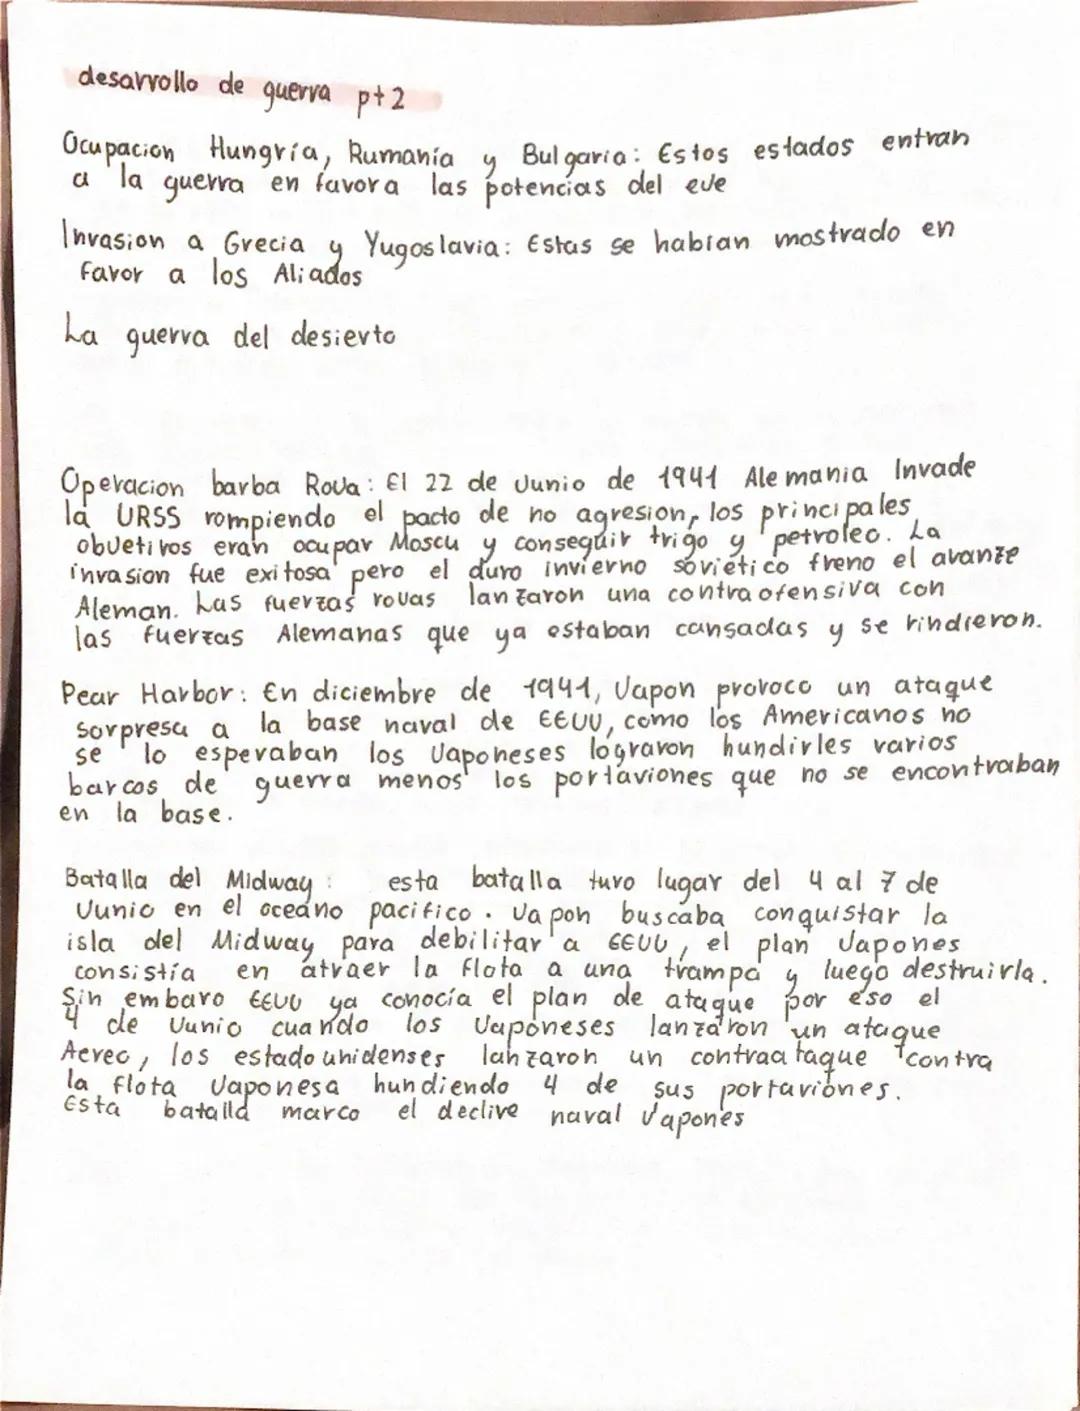 desarrollo de guerra pt2
Ocupacion Hungría, Rumanía y Bulgaria: Estos estados entran
a la guerra en favor a las potencias del eje
Invasion a Grecia y Yugoslavia: Estas se habian mostrado en
favor a los Aliados
La guerra del desierto
Operacion barba Roja: El 22 de Junio de 1941 Alemania Invade
la URSS rompiendo el pacto de no agresion, los principales
objetivos eran ocupar Moscu y conseguir trigo y petroleo. La
invasion fue exitosa pero el duro invierno soviético freno el avanze
Aleman. Las fuerzas rojas lanzaron una contraofensiva con
las fuerzas Alemanas que ya estaban cansadas y se rindieron.
Pear Harbor: En diciembre de 1941, Japon provoco un ataque
sorpresa a la base naval de EEUU, como los Americanos no
se lo esperaban los Japoneses lograron hundirles varios
barcos de guerra menos los portaviones que no se encontraban
en la base.
Batalla del Midway: esta batalla tuvo lugar del 4 al 7 de
Junio en el oceano pacifico. Japon buscaba conquistar la
isla del Midway para debilitar a EEUU, el plan Japones
consistía en atraer la flota a una trampa y luego destruirla.
Sin embaro EEUU ya conocía el plan de ataque por eso el
4 de Junio cuando los Japoneses lanzaron un ataque
Aereo, los estadounidenses lanzaron un contraataque contra
la flota Japonesa hundiendo 4 de sus portaviones.
Esta batalla marco el declive naval Japones